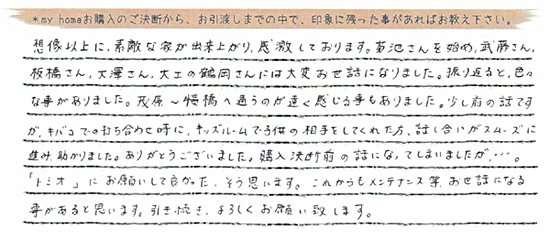 *my homeお購入のご決断から、お引渡しまでの中で、印象に残った事があればお教え下さい。
想像以上に、素敵な家が出来上がり、感激しております。菊池さんを始め、武藤さん、
板橋さん、大澤さん、大工の鶴岡さんには大変お世話になりました。振り返ると、色々
な事がありました。茂原〜幔橋へ通うのが遠く感じる事もありました。少し前の話です
が、キバコでの打ち合わせ時に、キッズルームで子供の相手をしてくれた方、話し合いがスムーズに
進み、助かりました。ありがとうございました。購入決断前の話になってしまいましたが・・・。
「トミオ」にお願いして良かった、そう思います。これからもメンテナンス等、お世話になる
事があると思います。引き続き、よろしくお願い致します。